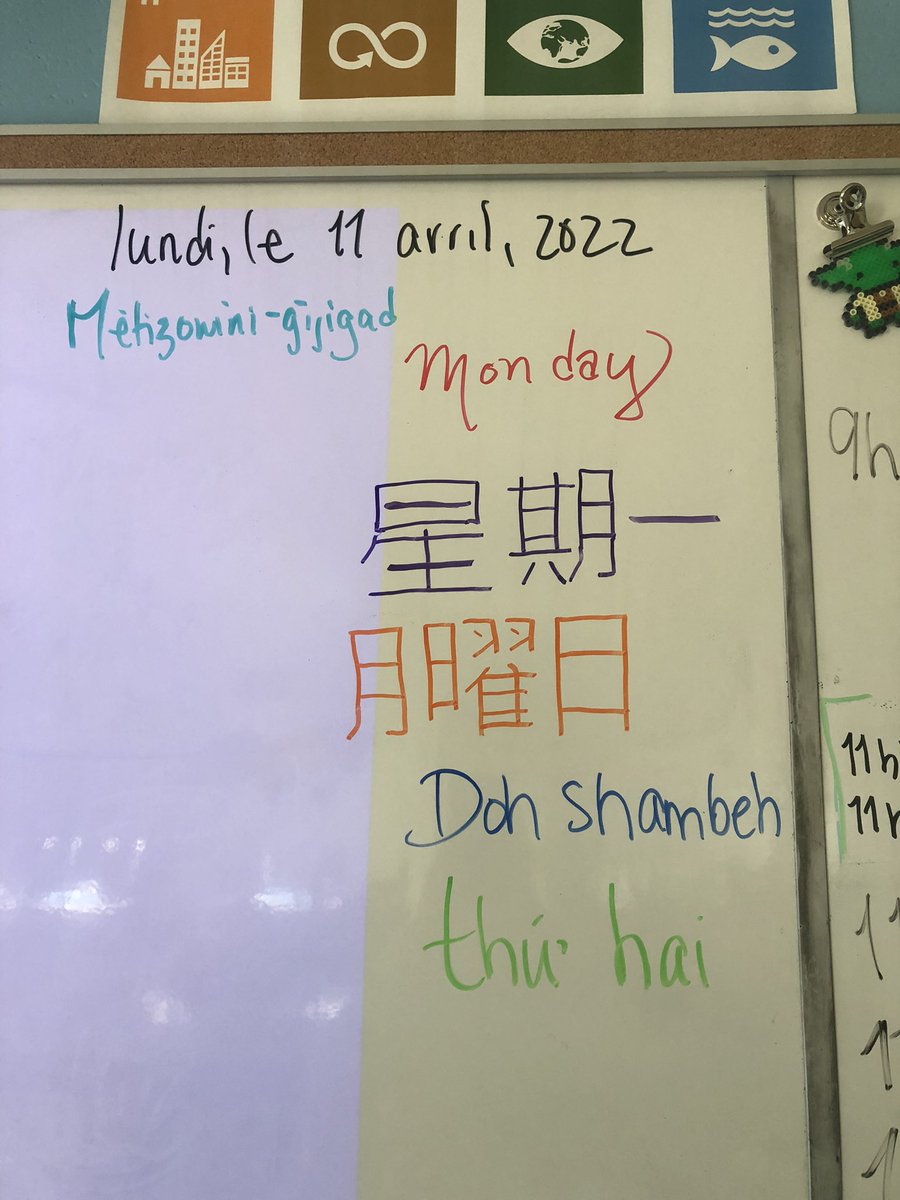 lundi, le 11 avril, 2022
Mètizowini-gījigad
Monday
星期一
月曜日
Doh shambeh
thứ hai
9h
11h
11h